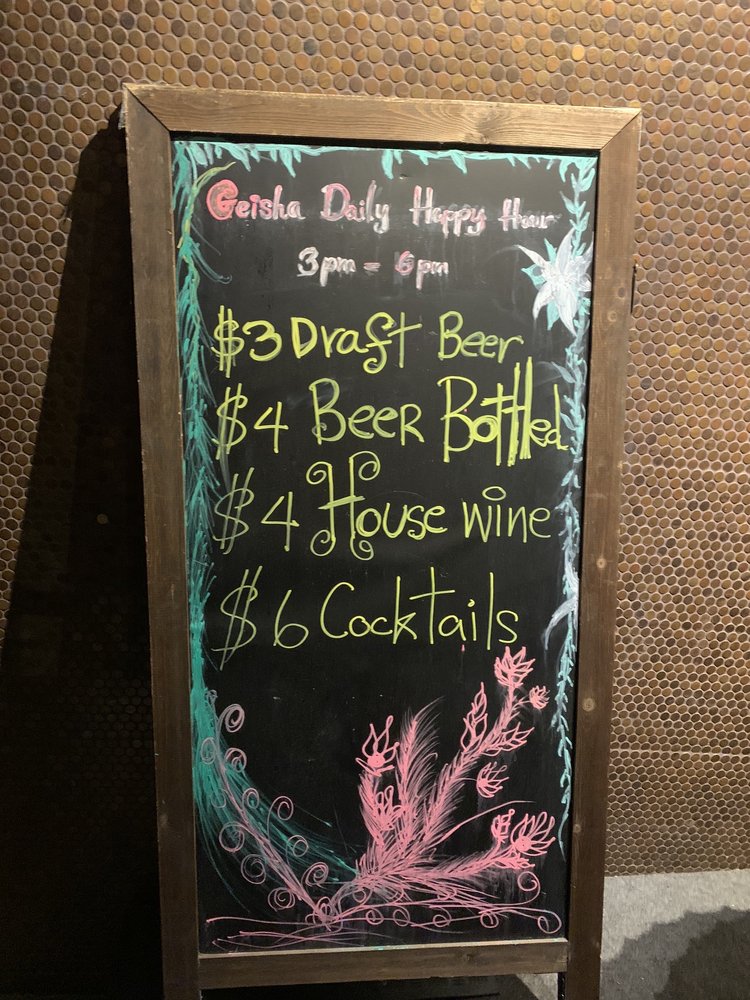 Geisha Daily Happy Hour
3pm - 6pm
$3 Draft Beer
$4 Beer Bottled
$4 House wine
$6 Cocktails